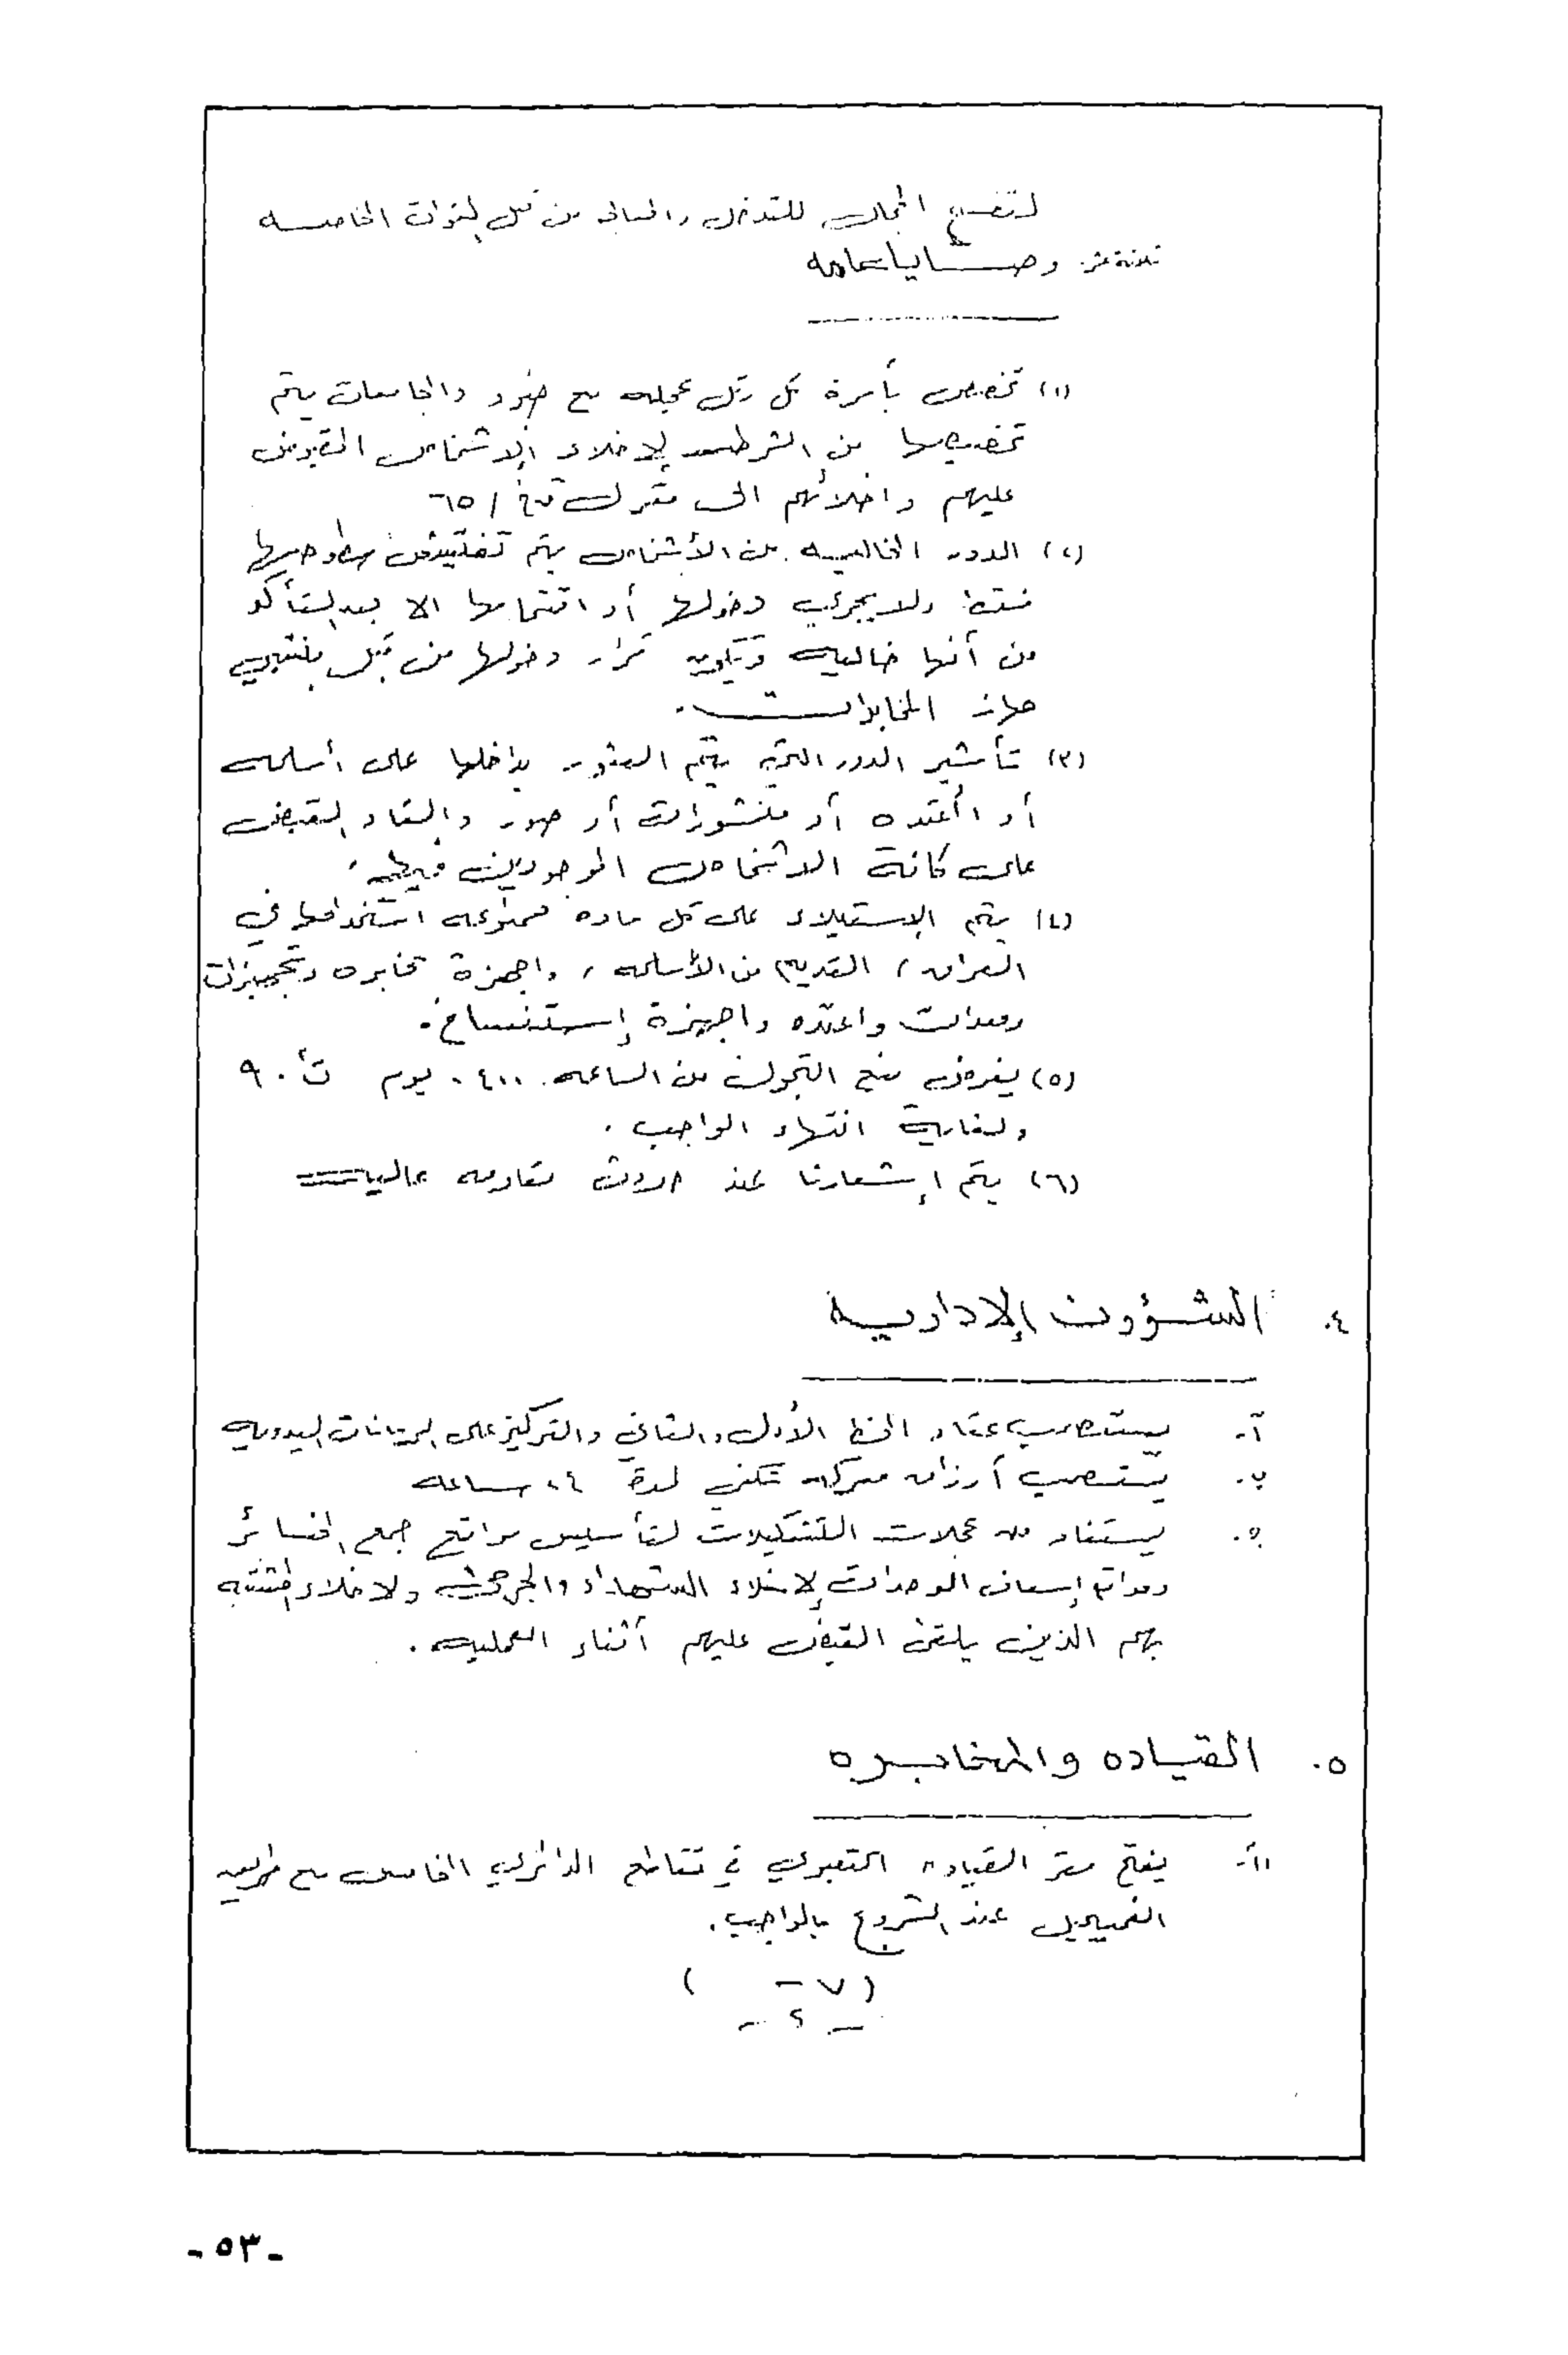 لتفسح المجال للتدخل والمعالجة من قبل القوات الخاصه
ثلاثة عشر. وصايا عامه
(١) تخصص بأمرة كل رتل عجله مع جنود والجامعات يتم
تخصيصها من الشرطه لإخلاء الاشخاص المقبوض
عليهم واخلائهم الى مقر ل ق خ / ٦٥
(٢) الدور الخاليه من الأشخاص يتم تفتيش سطوحها
فقط ولا يجري دخولها أو اقتحامها الا بعد التأكد
من أنها خاليه ويكون قرار دخولها من قبل منتسبي
جهاز المخابرات.
(٣) تأشير الدور التي يتم العثور بداخلها على أسلحه
أو أعتده أو منشورات أو صور والقاء القبض
على كافة الاشخاص الموجودين فيها.
(٤) يتم الإستيلاء على كل ماده ممنوعه استخدامها في
العراق، القديم من الأسلحه، واجهزة مخابره وتجهيزات
ومعدات واعتده واجهزة إستنساخ.
(٥) يفرض منع التجول من الساعه ٠٤٠٠ يوم ت أ ٩٠
ولغاية انتهاء الواجب.
(٦) يتم إشعارنا عند حدوث مقاومه عاليه
٤. الشؤون الإداريه
آ- يستصحب عتاد الخط الأول والثاني والتركيز على الرمانات اليدويه
ب. يستصحب أرزاق معركه تكفي لمدة ٢٤ ساعه
ج. يستفاد من عجلات التشكيلات لتأسيس مواقع جمع الخسائر
ومواقع إسعاف الوحدات لإخلاء الشهداء والجرحى ولاخلاء المشتبه
بهم الذين يلقى القبض عليهم أثناء العمليه.
٥. القياده والمخابره
أ- يفتح مقر القياده التعبوي في تقاطع الدائري الخامس مع طريق
الفحيحيل عند الشروع بالواجب.
(٧ - )
- ٤ -
- ٥٣ -